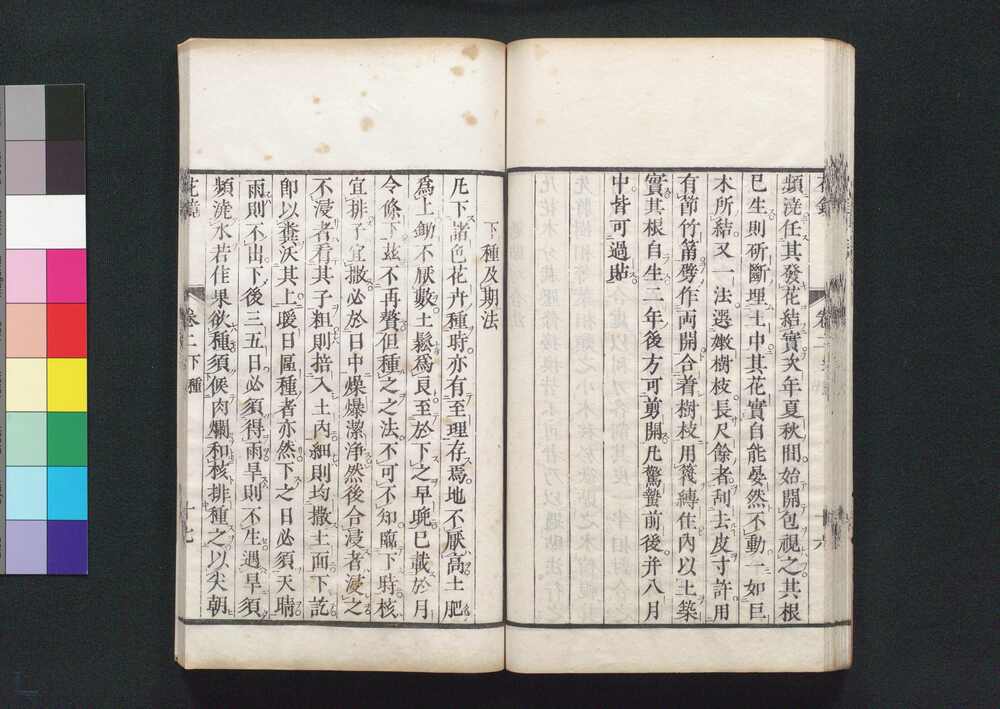 頻澆任其發花結實次年夏秋間始開包視之其根
已生則斫斷埋土中其花實自能晏然不動一如巨
木所結又一法選嫩樹枝長尺餘者刮去皮寸許用
有節竹筩劈作両開合着樹枝用篾縛住內以土築
實其根自生二年後方可剪開凡驚蟄前後并八月
中皆可過貼
下種及期法
凡下諸色花卉種時亦有至理存焉地不厭高土肥
爲上鋤不厭數土鬆爲良至於下之早晚已載於月
令條下玆不再贅但種之之法不可不知臨下時核
宜排子宜撒必於日中爆潔淨然後合浸者浸之
不浸者看其子粗則掊入土內細則均撒土面下訖
卽以糞沃其上暖日區種者亦然下之日必須天晴
雨則不出下後三五日必須得雨旱則不生遇旱須
頻澆水若佳果欲種須候肉爛和核排種之以尖朝
花鏡 卷二 下種 十七